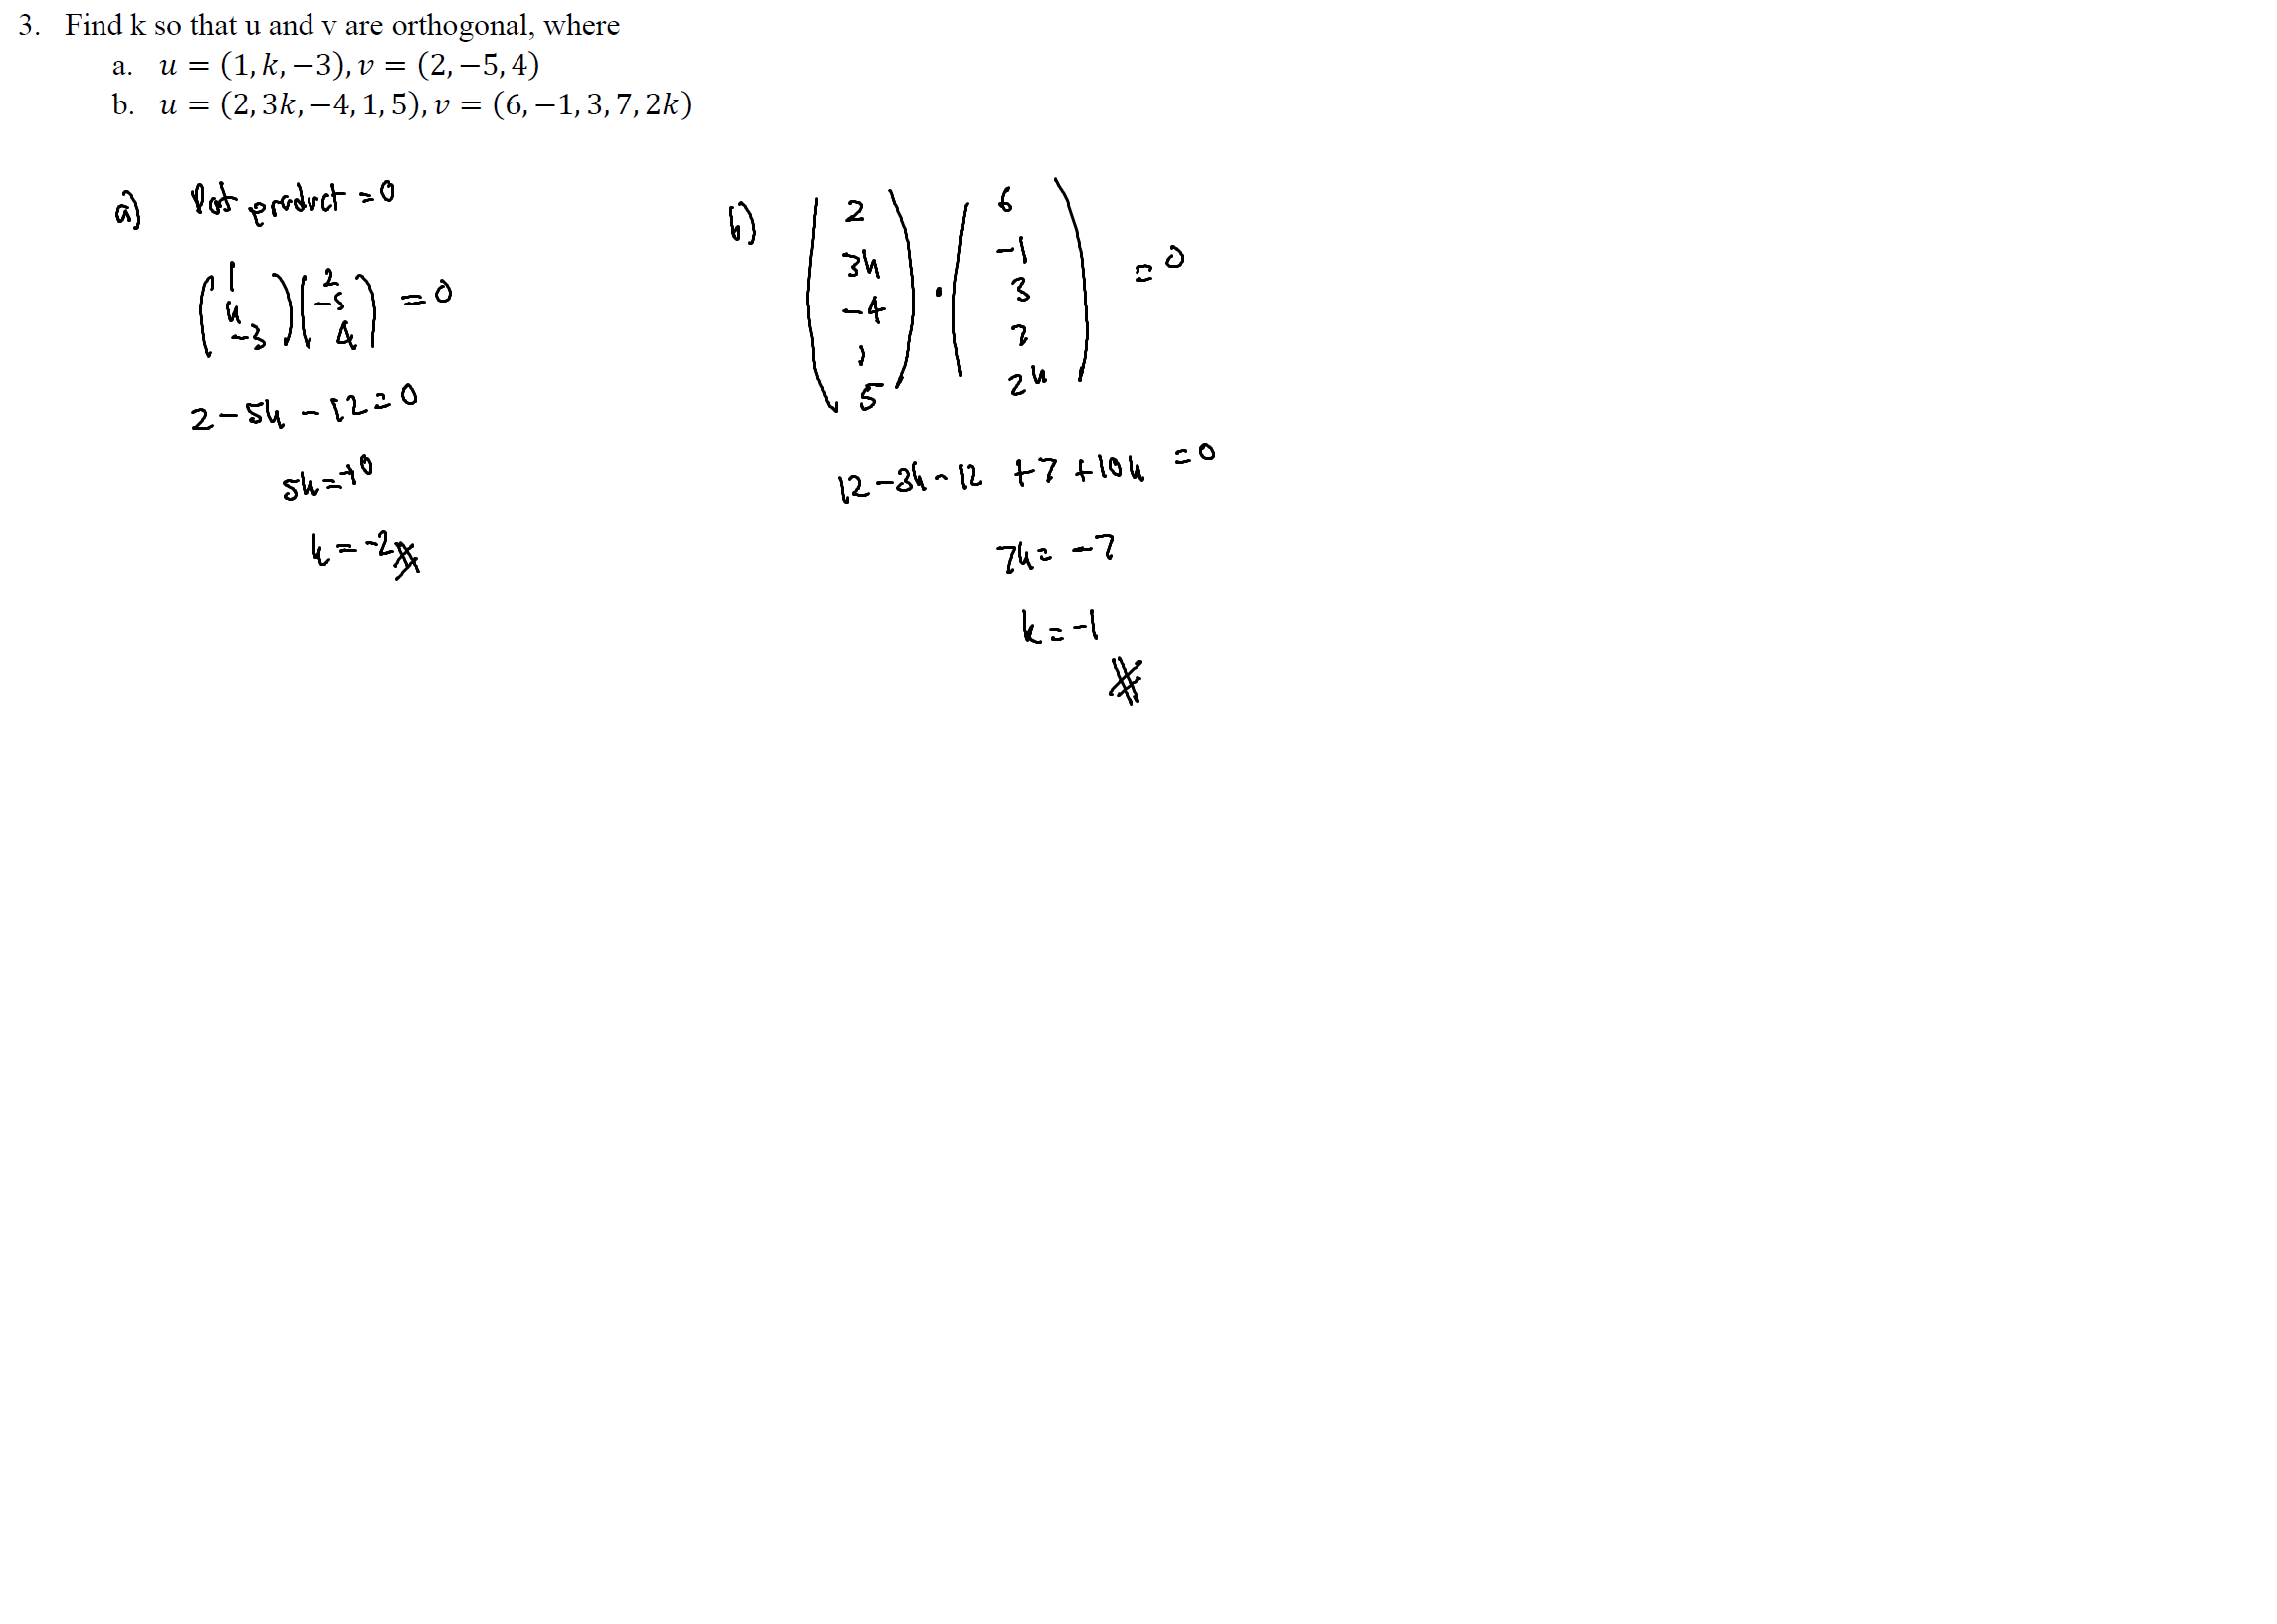 3. Find k so that u and v are orthogonal, where
a. u = (1, k, −3), v = (2, −5, 4)
b. u = (2, 3k, −4, 1, 5), v = (6, −1, 3, 7, 2k)
a) Dot product = 0
(1 k −3)(2 −5 4) = 0
2 − 5k − 12 = 0
5k = −10
k = −2
b) (2 3k −4 1 5) · (6 −1 3 7 2k) = 0
12 − 3k − 12 + 7 + 10k = 0
7k = −7
k = −1